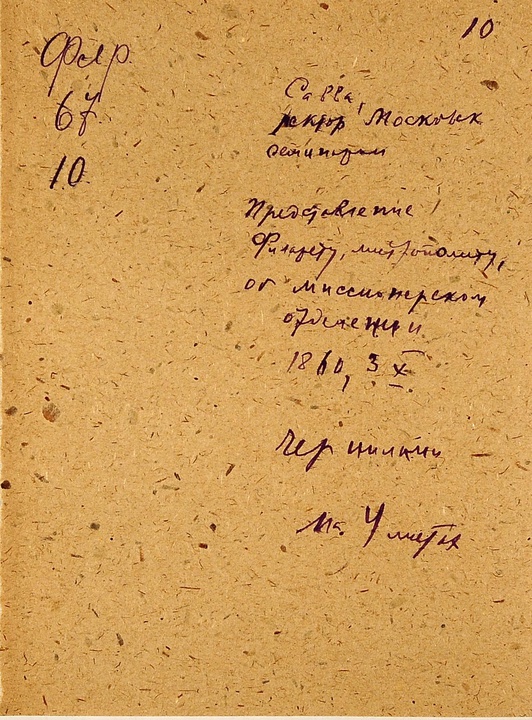 10
Фил
67
10
Савва,
ректор Московск
семинарии
Представление
Филарету, митрополиту,
об миссионерском
отделении
1860, 3 X
Чернилами
На 4 листах